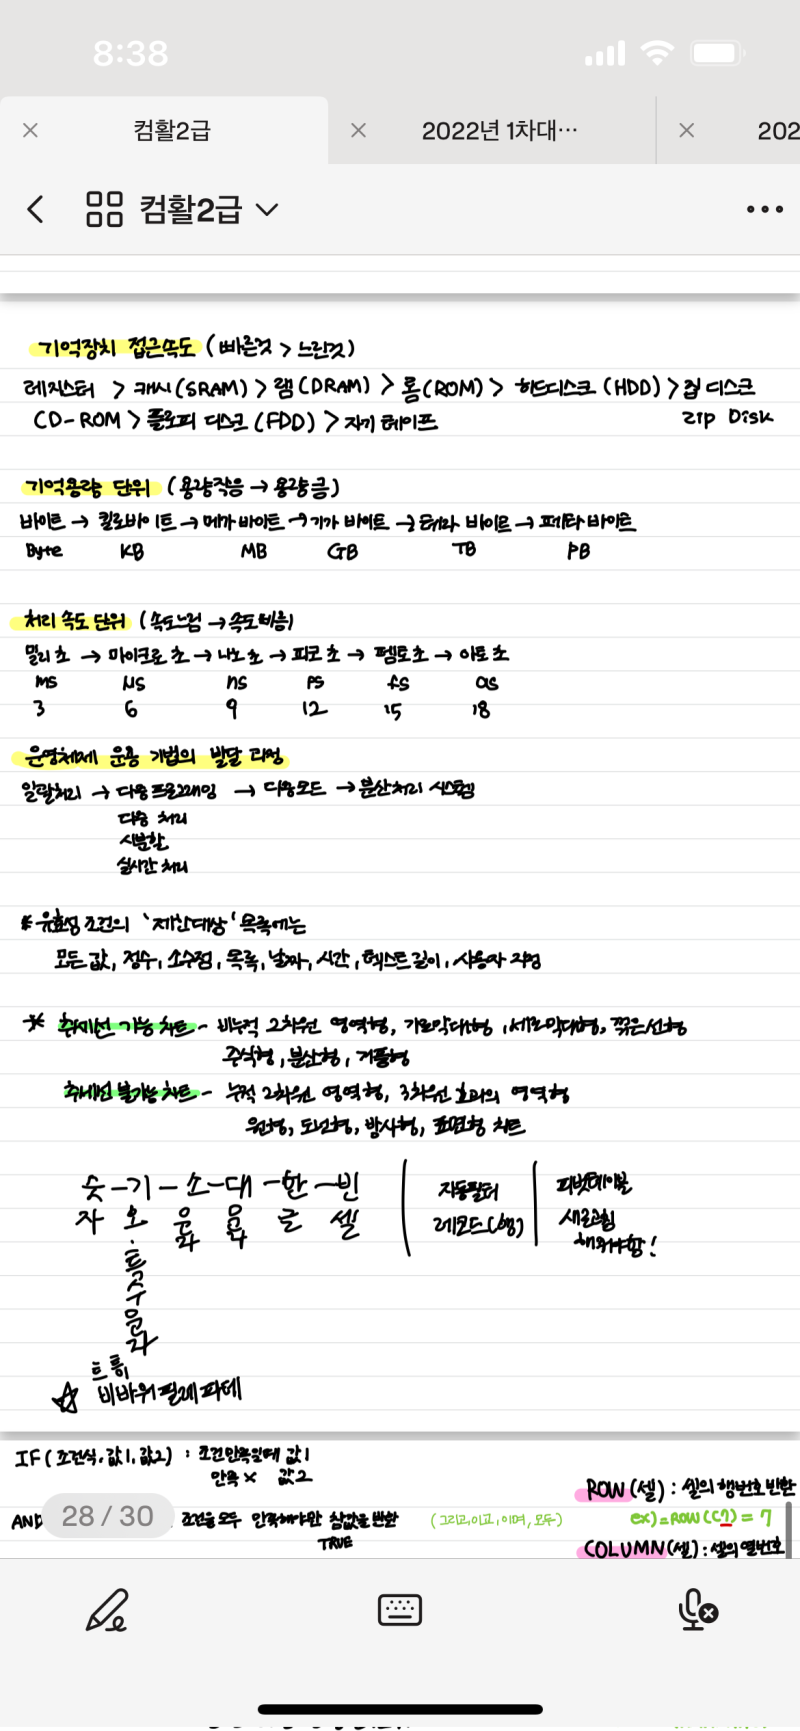 8:38
컴활2급
2022년 1차대…
202
컴활2급
기억장치 접근속도 (빠른것 > 느린것)
레지스터 > 캐시(SRAM) > 램(DRAM) > 롬(ROM) > 하드디스크(HDD) > 집 디스크
CD-ROM > 플로피 디스크(FDD) > 자기 테이프
Zip Disk
기억용량 단위 (용량작음 → 용량큼)
바이트 → 킬로바이트 → 메가 바이트 → 기가 바이트 → 테라 바이트 → 페타 바이트
Byte KB MB GB TB PB
처리 속도 단위 (속도느림 → 속도빠름)
밀리 초 → 마이크로 초 → 나노 초 → 피코 초 → 펨토 초 → 아토 초
ms μs ns ps fs as
3 6 9 12 15 18
운영체제 운용 기법의 발달 과정
일괄처리 → 다중프로그래밍 → 다중모드 → 분산처리 시스템
다중 처리
시분할
실시간 처리
* 유효성 조건의 '제한대상' 목록에는
모든 값, 정수, 소수점, 목록, 날짜, 시간, 텍스트 길이, 사용자 지정
* 추세선 가능 차트 - 비누적 2차원 영역형, 가로막대형, 세로막대형, 꺾은선형
주식형, 분산형, 거품형
추세선 불가능 차트 - 누적 2차원 영역형, 3차원 효과의 영역형
원형, 도넛형, 방사형, 표면형 차트
숫 - 기 - 소 - 대 - 한 - 빈
자 오 문자 문자 글 셀
·특수문자
자동필터
레코드(행)
피벗테이블
새로고침
해줘야함!
트롱이
☆ 비바위필레파데
IF(조건식, 값1, 값2) : 조건만족일때 값1
만족 × 값2
ROW(셀) : 셀의 행번호 반환
AND
28 / 30
조건을 모두 만족해야만 참값을 반환
(그리고, 이고, 이며, 모두)
ex) =ROW(C7) = 7
TRUE
COLUMN(셀) : 셀의 열번호